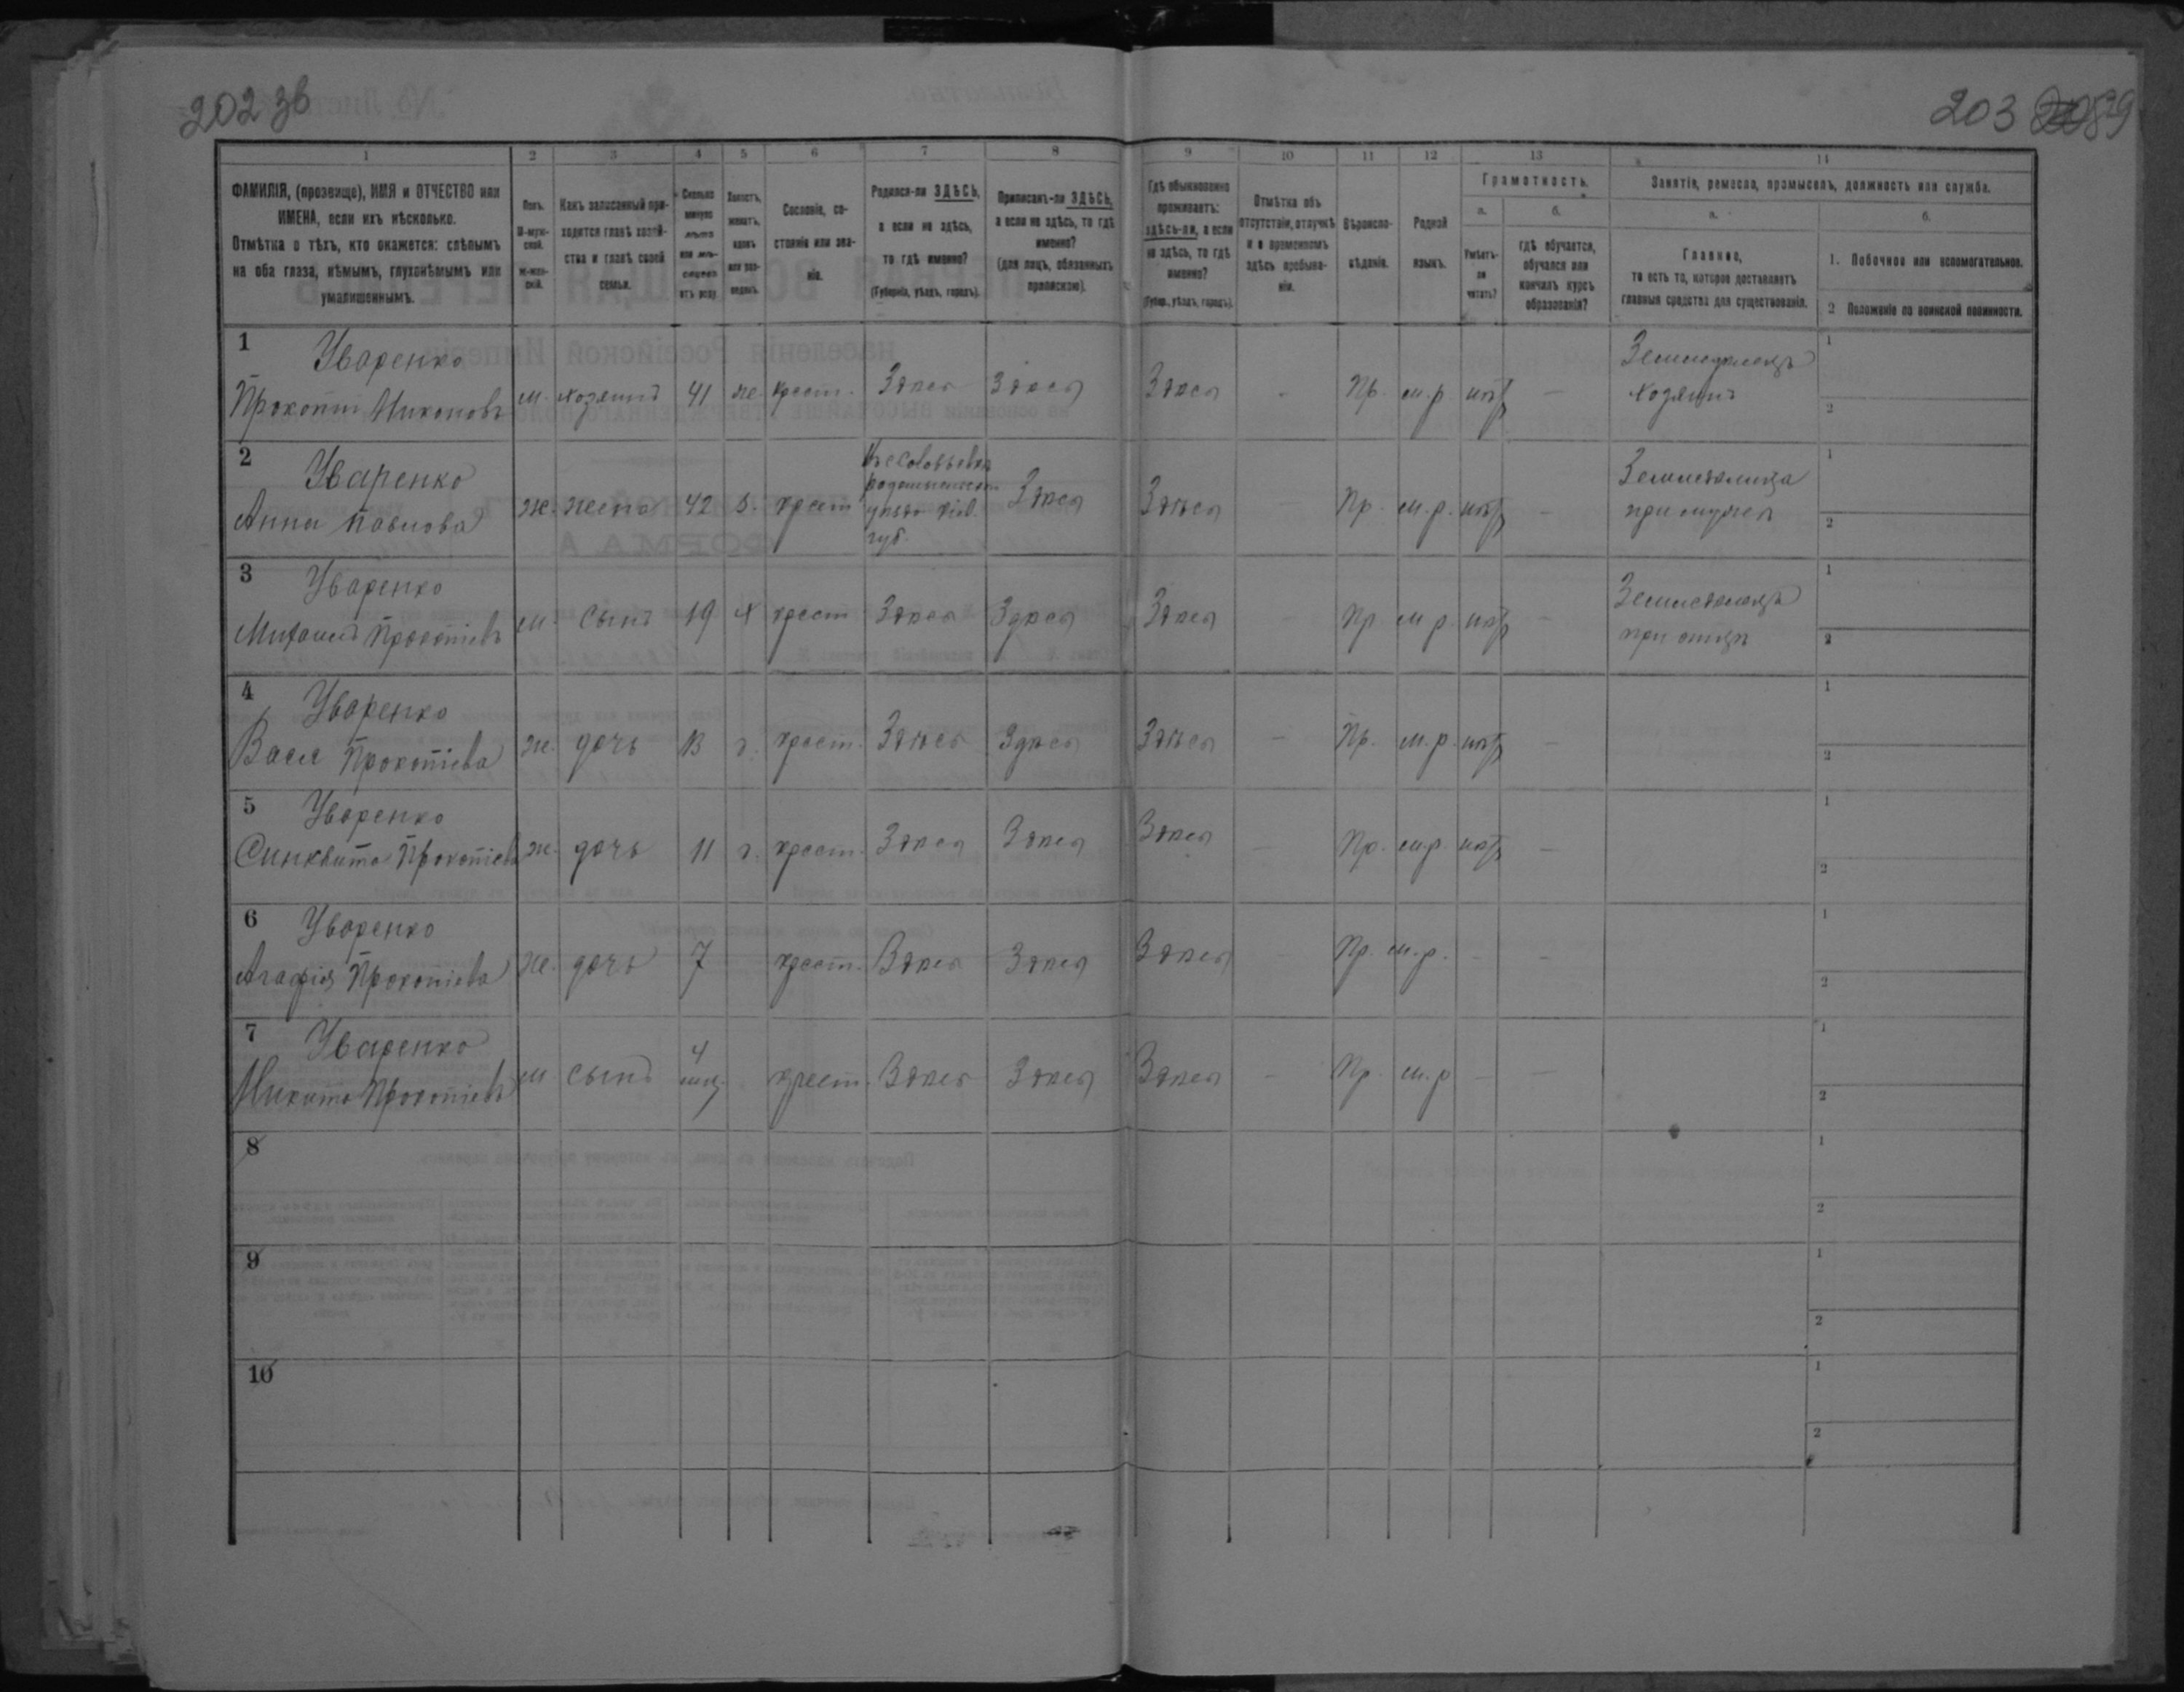 202 зв
203
89
1 2 3 4 5 6 7 8 9 10 11 12 13 14
ФАМИЛІЯ, (прозвище), ИМЯ и ОТЧЕСТВО или
ИМЕНА, если ихъ нѣсколько.
Отмѣтка о тѣхъ, кто окажется: слѣпымъ
на оба глаза, нѣмымъ, глухонѣмымъ или
умалишеннымъ.
Полъ.
М-муж-
ской.
Ж-жен-
скій.
Какъ записанный при-
ходится главѣ хозяй-
ства и главѣ своей
семьи.
Сколько
минуло
лѣтъ
или мѣ-
сяцевъ
отъ роду
Холостъ,
женатъ,
вдовъ
или раз-
веденъ.
Сословіе, со-
стояніе или зва-
ніе.
Родился-ли ЗДѢСЬ,
а если не здѣсь,
то гдѣ именно?
(Губернія, уѣздъ, городъ).
Приписанъ-ли ЗДѢСЬ,
а если не здѣсь, то гдѣ
именно?
(для лицъ, обязанныхъ
припискою).
Гдѣ обыкновенно
проживаетъ:
здѣсь-ли, а если
не здѣсь, то гдѣ
именно?
(Губер., уѣздъ, городъ).
Отмѣтка объ
отсутствіи, отлучкѣ
и о временномъ
здѣсь пребыва-
ніи.
Вѣроиспо-
вѣданіе.
Родной
языкъ.
Грамотность.
а.
Умѣетъ-
ли
читать?
б.
гдѣ обучается,
обучался или
кончилъ курсъ
образованія?
Занятіе, ремесло, промыселъ, должность или служба.
а.
Главное,
то есть то, которое доставляетъ
главныя средства для существованія.
б.
1. Побочное или вспомогательное.
2 Положеніе по воинской повинности.
1 Уваренко
Прокопій Никоновъ м. хозяинъ 41 же. крест. Здѣсь Здѣсь Здѣсь - Пр. м.р нѣтъ —
Земледѣлецъ
хозяинъ
1
2
2 Уваренко
Анна Павлова ж. жена 42 з. крест
уѣзда Кіев.
губ.
Здѣсь Здѣсь - Пр. м.р. нѣтъ -
Земледѣлица
при мужѣ
1
2
3 Уваренко
Михаилъ Прокопіевъ м. сынъ 19 х крест Здѣсь Здѣсь Здѣсь - Пр м р. нѣтъ -
Земледѣлецъ
при отцѣ
1
2
4 Уваренко
Васса Прокопіева ж. дочь 13 д. крест. Здѣсь Здѣсь Здѣсь - Пр. м.р. нѣтъ -
1
2
5 Уваренко
Прокопіева ж. дочь 11 д. крест. Здѣсь Здѣсь Здѣсь — Пр. м.р нѣтъ —
1
2
6 Уваренко
Агафія Прокопіева ж. дочь 7 крест. Здѣсь Здѣсь Здѣсь - Пр. м.р. - -
1
2
7 Уваренко
Никита Прокопіевъ м сынъ 4 мѣс. крест. Здѣсь Здѣсь Здѣсь - Пр. м.р — —
1
2
8
1
2
9
1
2
10
1
2